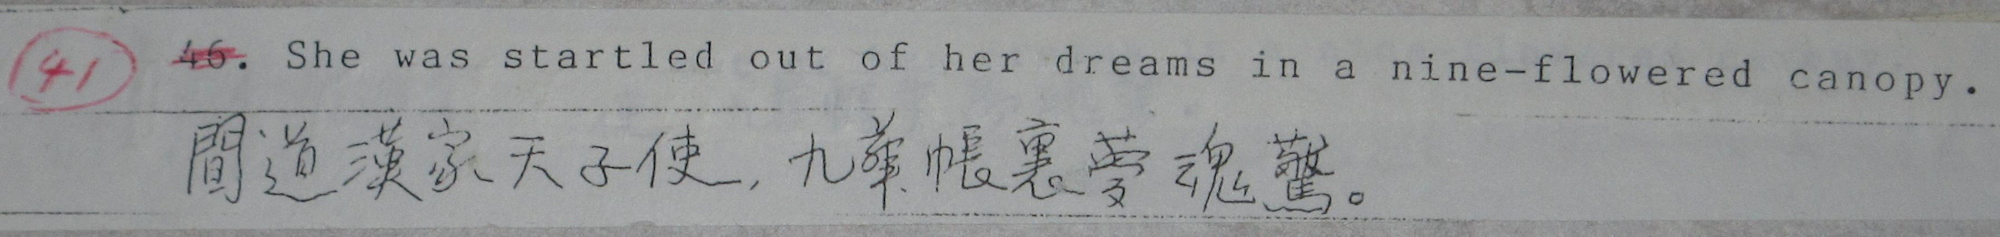 41 46. She was startled out of her dreams in a nine-flowered canopy.
間道漢家天子使,九華帳裏夢魂驚。